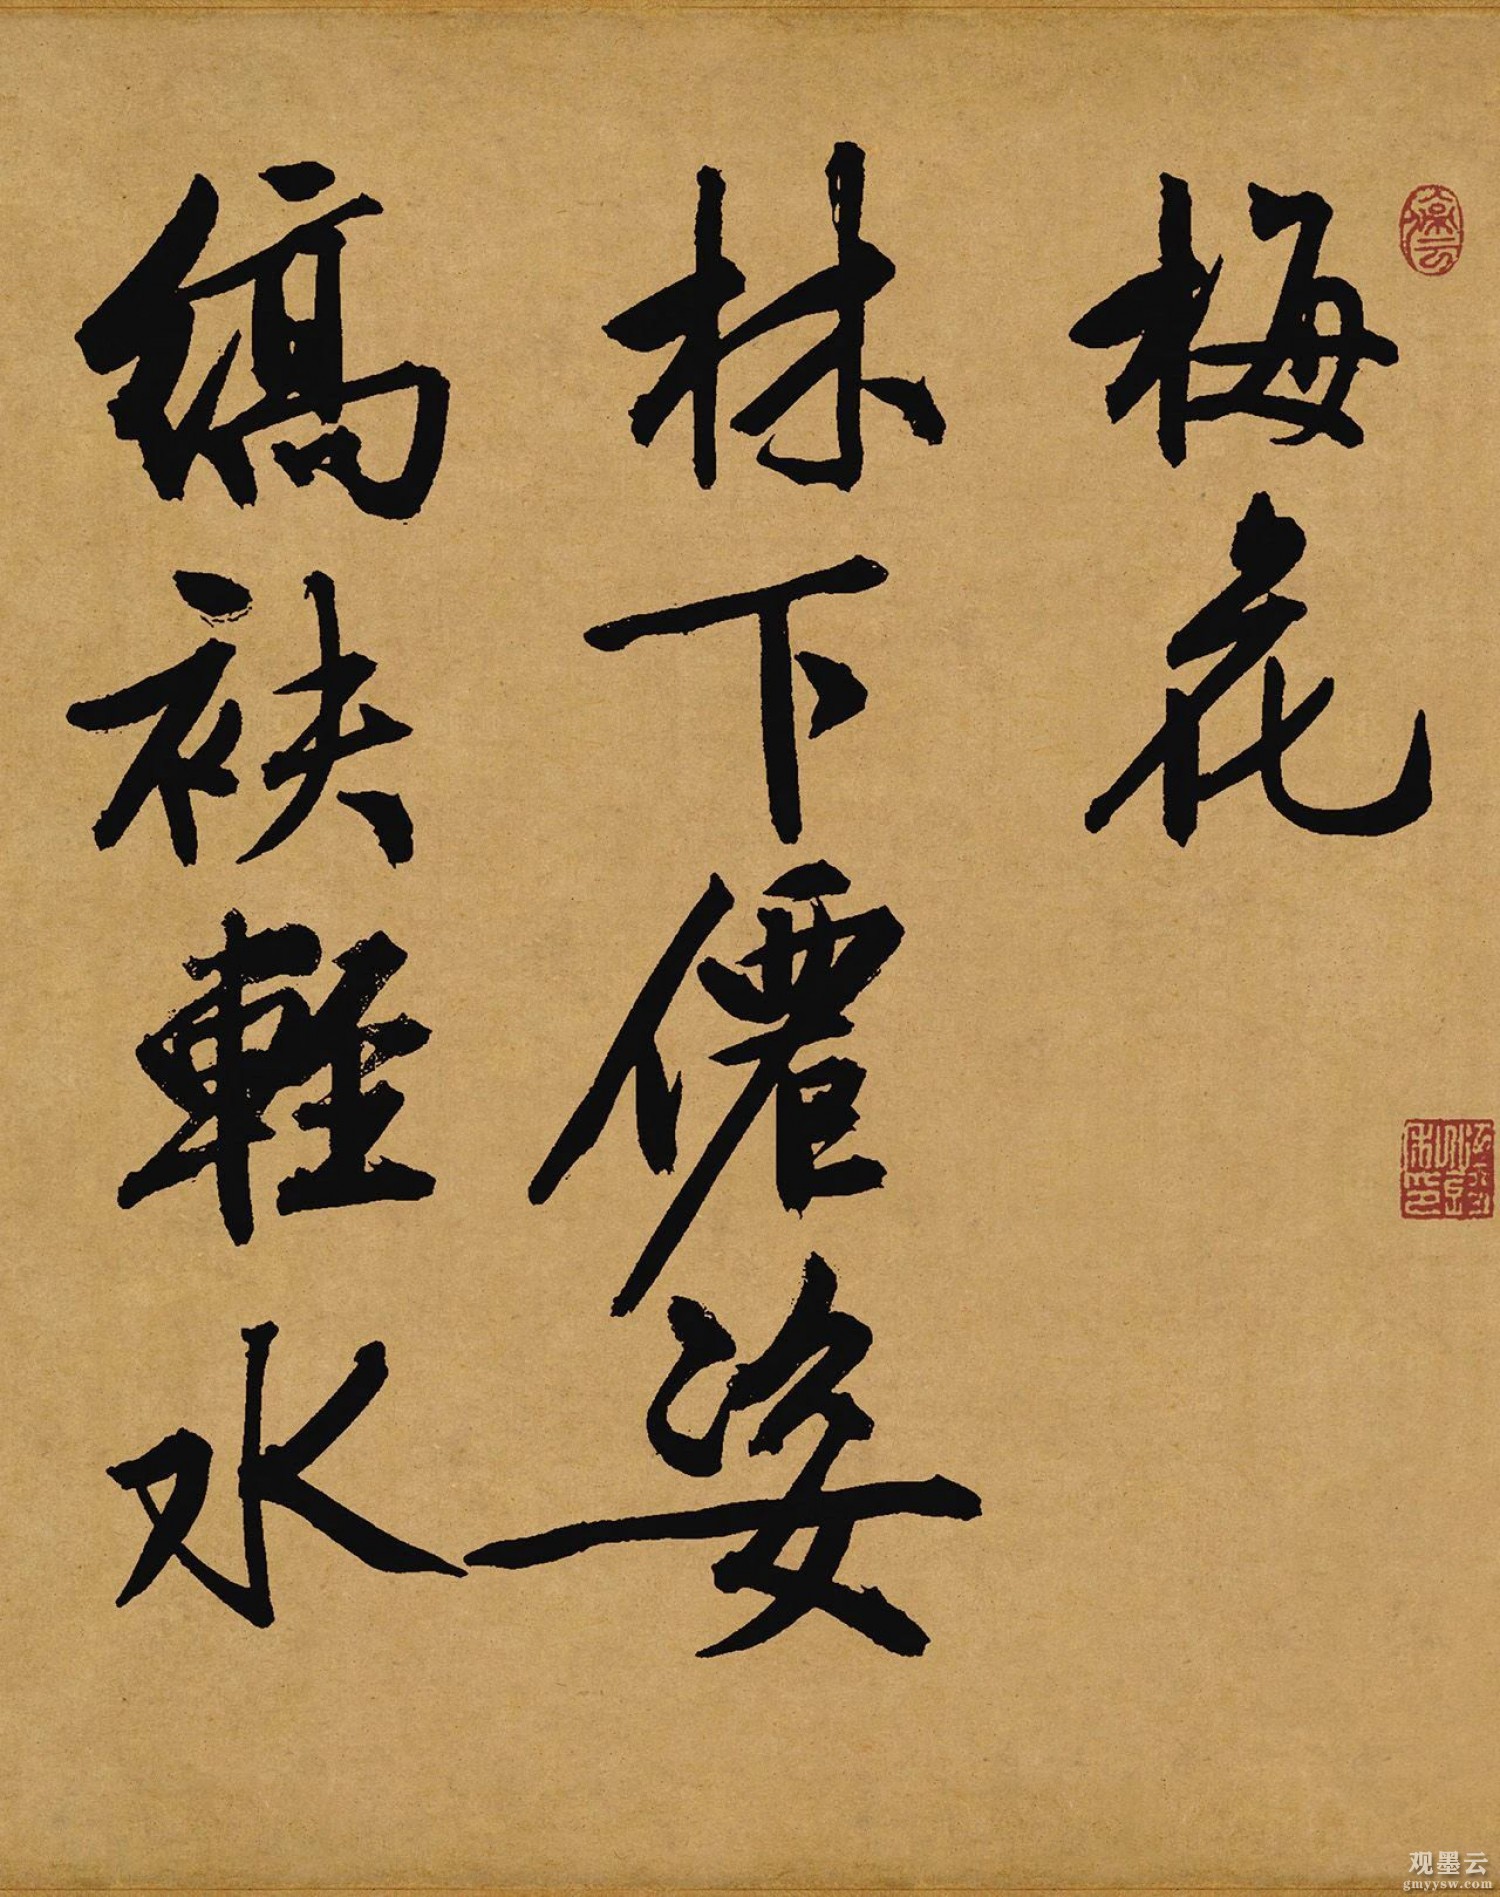 梅花
林下僊姿
縞袂輕水
观墨云
gmyysw.com